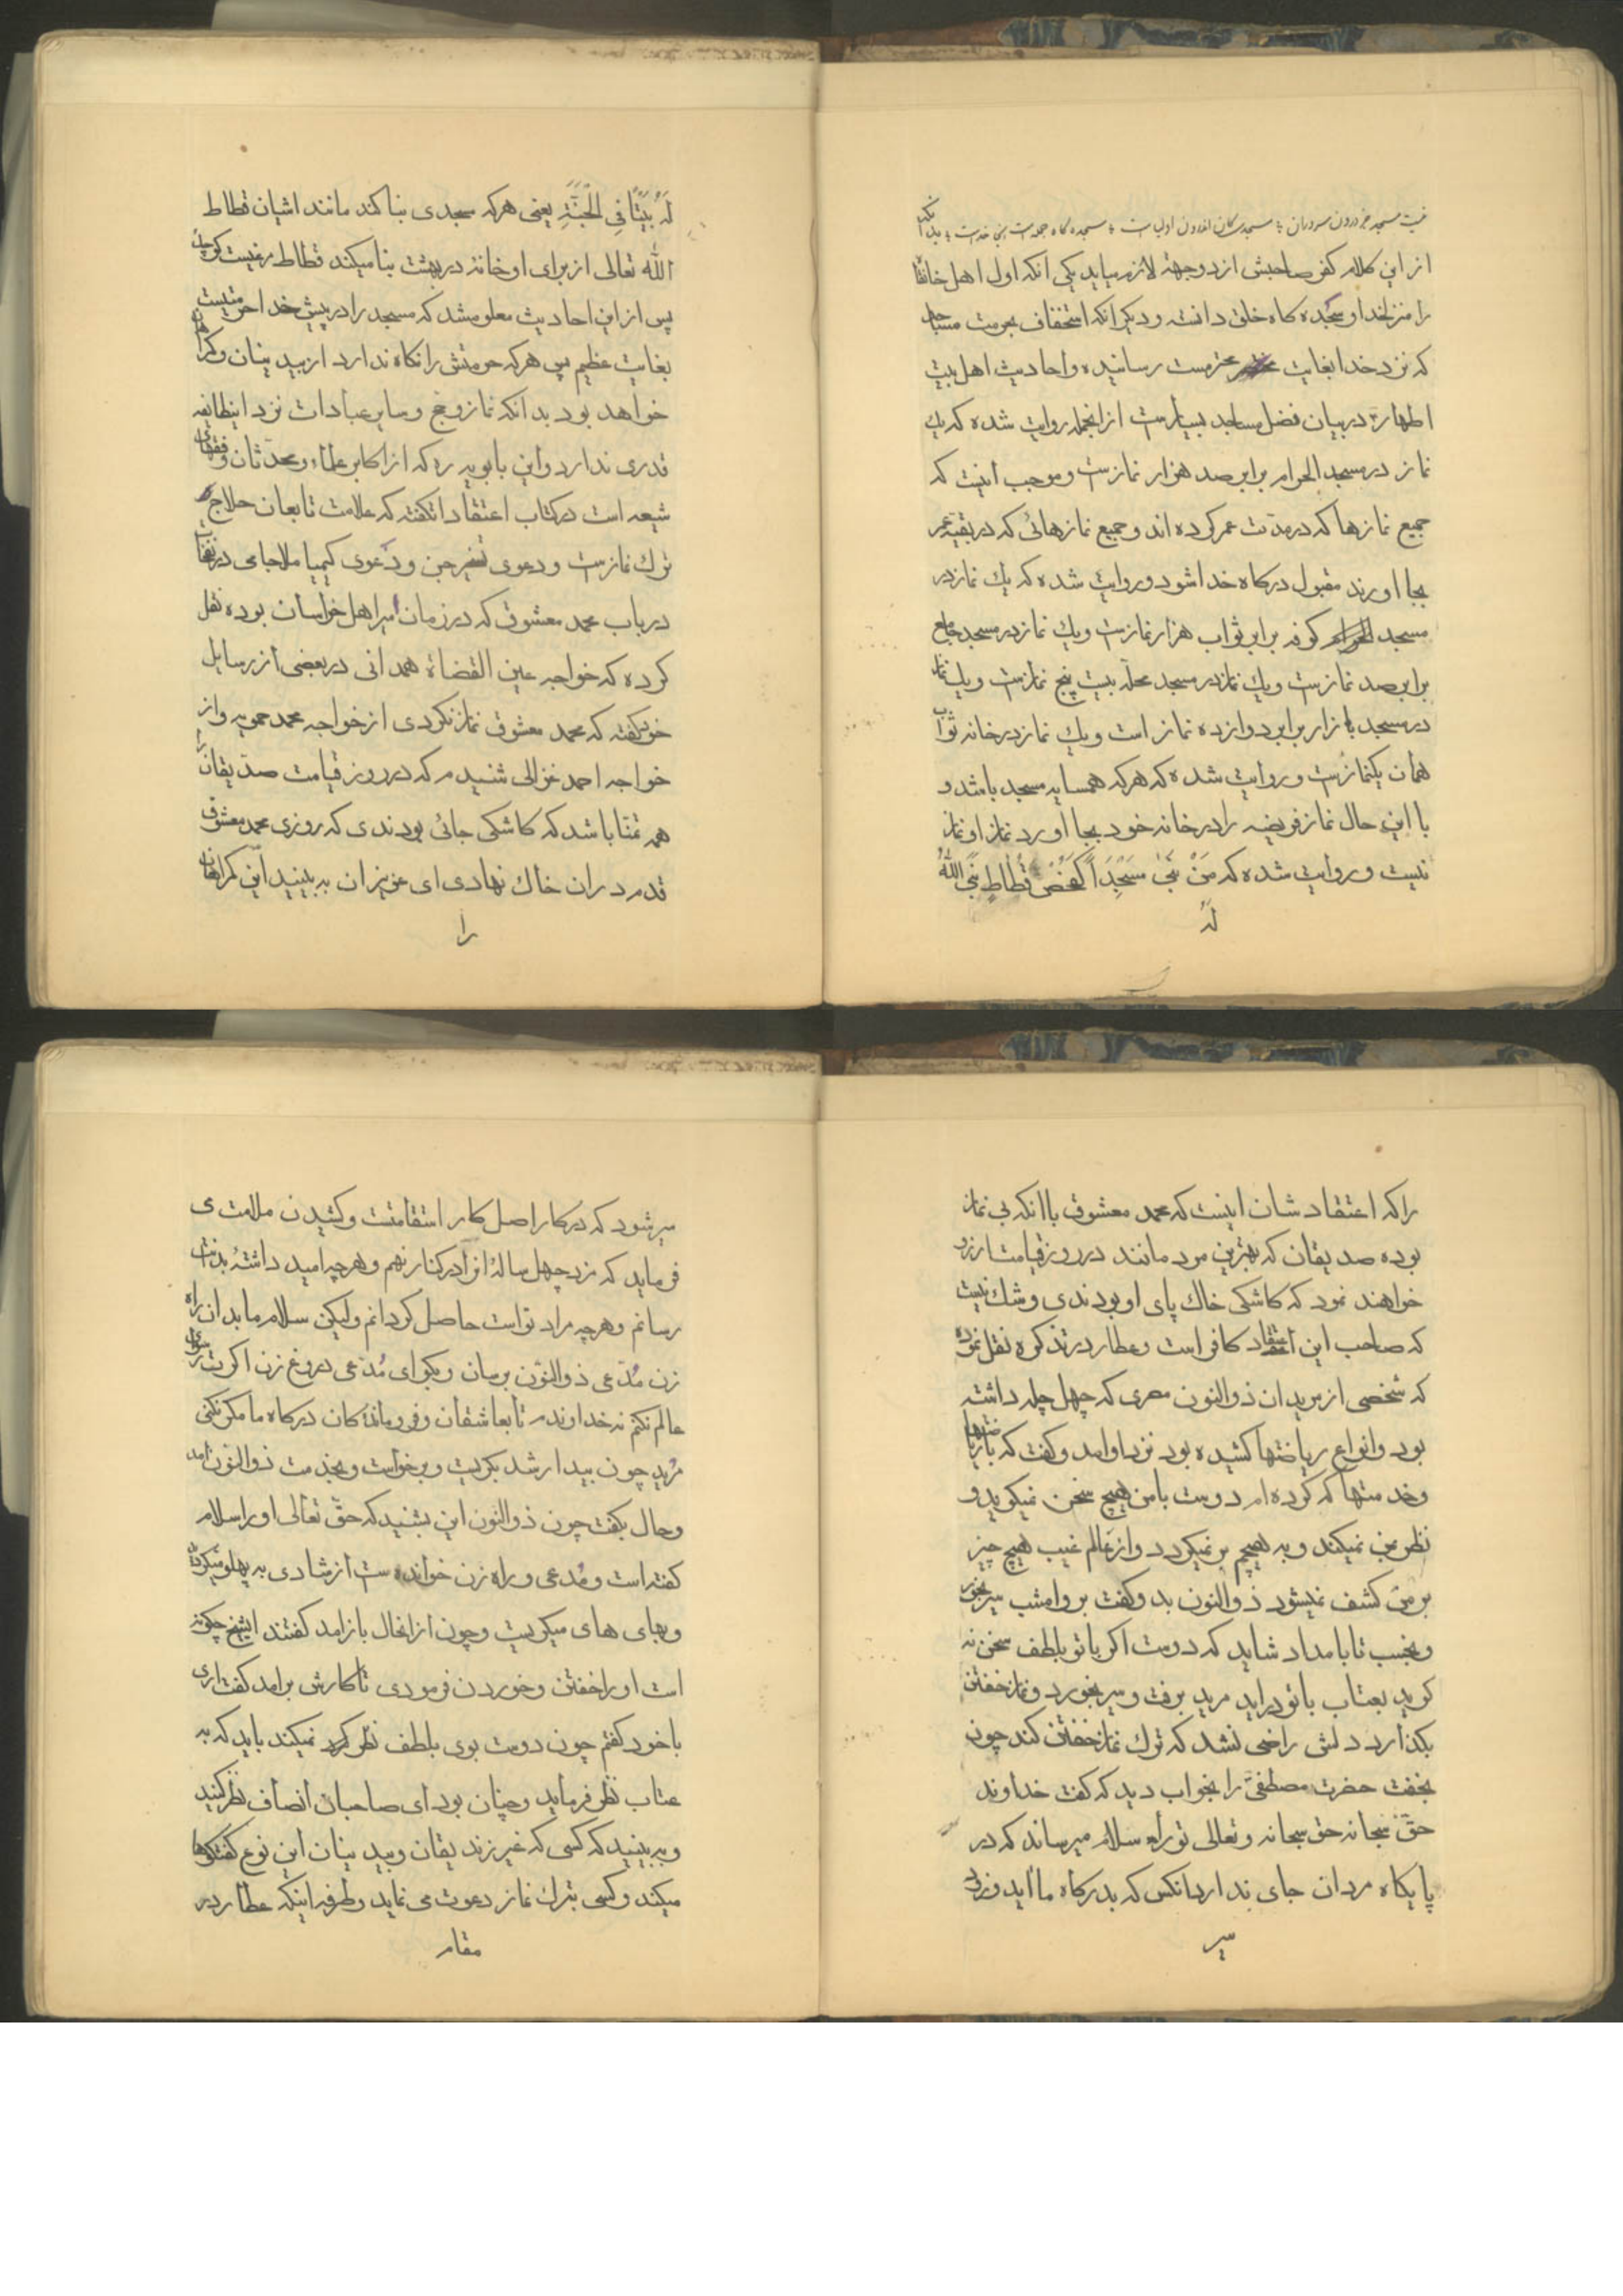 نیست مسجد جز درون سروران ؛ مسجدی کان اندرون اولیاست ؛ سجده گاه جمله است اینجا خداست ؛ بدانکه
از این کلام کفر صاحبش از دو جهة لازم میاید یکی آنکه اول اهل خانقا
را منزل خدا و سجده کاه خلق دانسته و دیکر آنکه استخفاف بحرمت مساجد
که نزد خدا بغایت محترمست رسانیده و احادیث اهل بیت
اطهار در بیان فضل مساجد بسیارست از انجمله روایت شده که یک
نماز در مسجد الحرام برابر صد هزار نمازست و موجب اینست که
جمیع نمازها که در مدّت عمر کرده اند و جمیع نمازهائی که در بقیّهٔ عمر
بجا اورند مقبول درکاه خدا شود و روایت شده که یک نماز در
مسجد کوفه برابر ثواب هزار نمازست و یک نماز در مسجد جامع
برابر صد نمازست و یک نماز در مسجد محلّه بیست پنج نمازست و یک نماز
در مسجد بازار برابر دوازده نماز است و یک نماز در خانه ثواب
همان یکنمازست و روایت شده که هرکه همسایه مسجد باشد و
با این حال نماز فریضه را در خانه خود بجا آورد نماز او نماز
نیست و روایت شده که مَنْ بَنٰی مَسْجِدَاً کَمَفْحَصِ قُطَاطٍ بَنَی اللّٰهُ
لَهُ
لَهُ بَیْتًا فِی الْجَنَّةِ یعنی هرکه مسجدی بنا کند مانند اشیان قطاط
اللّٰه تعالی از برای او خانهٔ در بهشت بنا میکند قطاط مرغیست کوچک
پس از این احادیث معلوم شد که مسجد را در پیش خدا حرمتیست
بغایت عظیم پس هرکه حرمتش را نکاه ندارد از بیدینان و کمراهان
خواهد بود بدانکه نماز و حج و سایر عبادات نزد اینطایفه
قدری ندارد و ابن بابویه ره که از اکابر علماء و محدّثان و فقهای
شیعه است در کتاب اعتقادات کفته که علامت تابعان حلاج
ترک نمازست و دعوی تسخیر جن و دعوی کیمیا ملا جامی در نفحات
در باب محمد معشوق که در زمان میر اهل خراسان بوده نقل
کرده که خواجه عین القضاة همدانی در بعضی از رسایل
خود کفته که محمد معشوق نماز نکردی از خواجه محمد حمویه و از
خواجه احمد غزالی شنیدم که در روز قیامت صدّیقان را
همه تمنّا باشد که کاشکی جائی بودندی که روزی محمد معشوق
قدم در ان خاک نهادی ای عزیزان به بینید این کمراهان
را
را که اعتقاد شان اینست که محمد معشوق با انکه بی نماز
بوده صدیقان که بهترین مردمانند در روز قیامت ارزو
خواهند نمود که کاشکی خاک پای او بودندی و شک نیست
که صاحب این اعتقاد کافر است و عطار در تذکره نقل نموده
که شخصی از مریدان ذوالنون مصری که چهل چله داشته
بود و انواع ریاضتها کشیده بود نزد او آمد و کفت که با ریاضتها
و خدمتها که کرده ام دوست با من هیچ سخن نمیکوید و
نظر بمن نمیکند و به هیچم بر نمیکیرد و از عالم غیب هیچ چیز
بر من کشف نمیشود ذوالنون بدو کفت برو امشب سیر بخور
و بخسب تا بامداد شاید که دوست اکر با تو بلطف سخن نه
کوید بعتاب با تو دراید مرید برفت و سیر بخورد و نماز خفتن
بکذارد دلش راضی نشد که ترک نماز خفتن کند چون
بخفت حضرت مصطفی را بخواب دید که کفت خداوند
حقّ سبحانه حق سبحانه و تعالی تو را سلام میرساند که در
پایکاه مردان جای ندارد انکس که بدرکاه ما اید و زود
سیر
سیر شود که در کار اصل کار استقامتست و کشیدن ملامت ی
فرماید که مزد چهل سالهٔ انرا در کنار نهم و هرچه امید داشتهٔ بدانت
رسانم و هرچه مراد تو است حاصل کردانم ولیکن سلام ما بدان راه
زن مُدّعی ذوالنّون برسان و بکو ای مُدّعی دروغ زن اکرت رسوای
عالم نکنم نه خداوندم تا بعاشقان و فروماندکان درکاه ما مکر نکنی
مُرید چون بیدار شد بکریست و برخواست و بخدمت ذوالنون آمد
و حال بکفت چون ذوالنون این بشنید که حقّ تعالی او را سلام
کفته است و مُدعی و راه زن خوانده ست از شادی به پهلو میکردید
و بهای های میکریست و چون از انحال باز امد کفتند ایشیخ چکونه
است او را خفتن و خوردن فرمودی تا کارش برامد کفت اری
با خود کفتم چون دوست بوی بلطف نظر نمیکند باید که به
عتاب نظر فرماید و چنان بود ای صاحبان انصاف نظر کنید
و به بینید که کسی که غیر زندیقان و بیدینان این نوع کفتکوها
میکند و کسی بترک نماز دعوت می نماید و طرفه اینکه عطار در
مقام